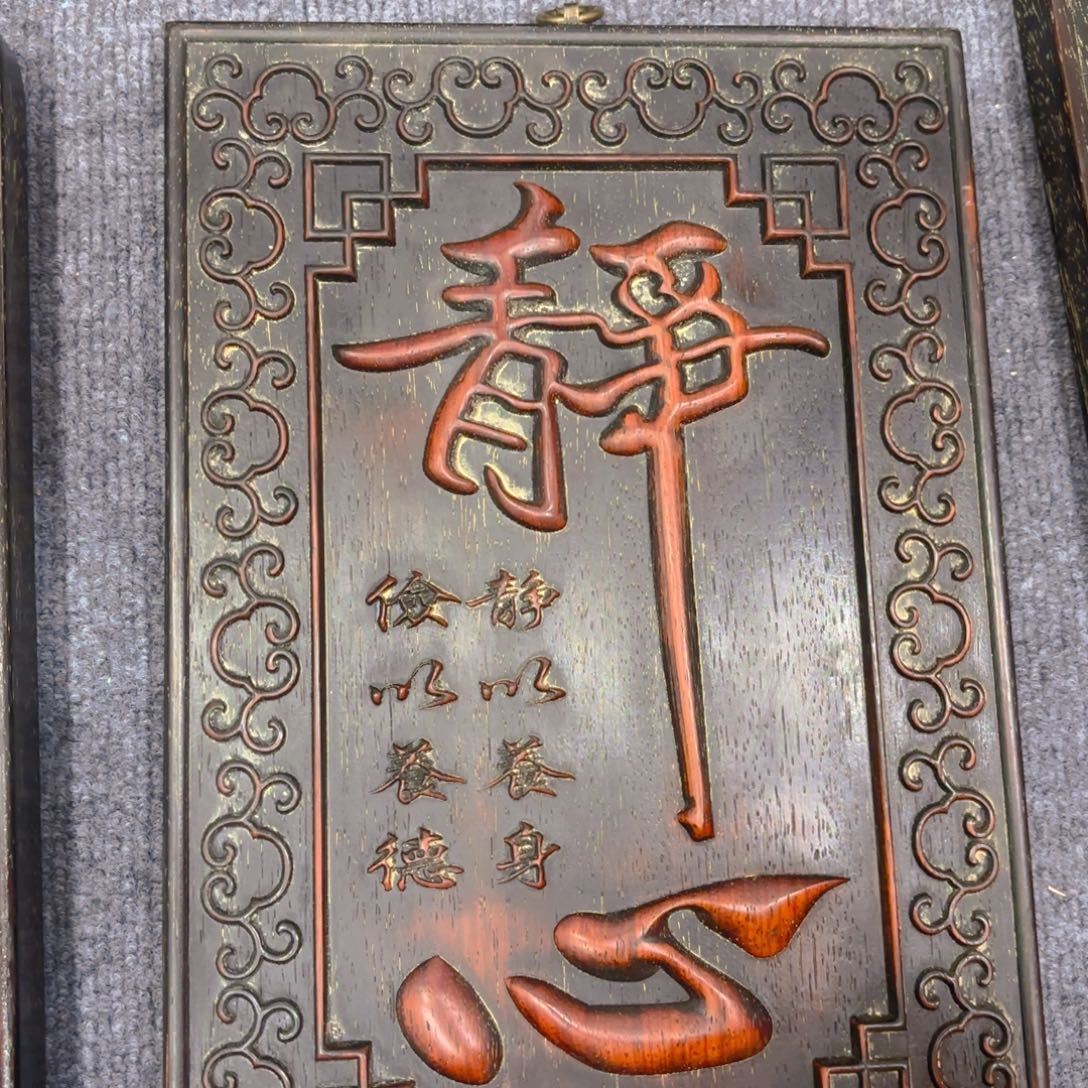 靜心
静以養身
儉以養德